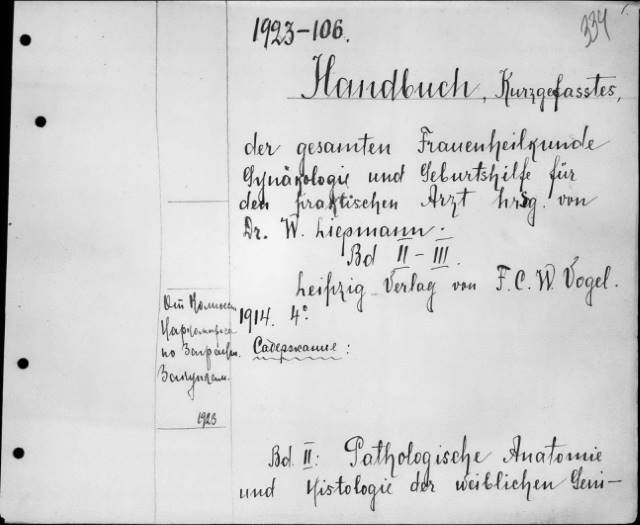 1923-106.
334
Handbuch, Kurzgefasstes,
der gesamten Frauenheilkunde
Gynäkologie und Geburtshilfe für
den praktischen Arzt hrsg. von
Dr. W. Liepmann.
Bd II - III.
Leipzig Verlag von F. C. W. Vogel.
1914. 4°.
От
по Заграничн.
Закупкам.
1923
Содержание:
Bd. II: Pathologische Anatomie
und Histologie der weiblichen Geni-